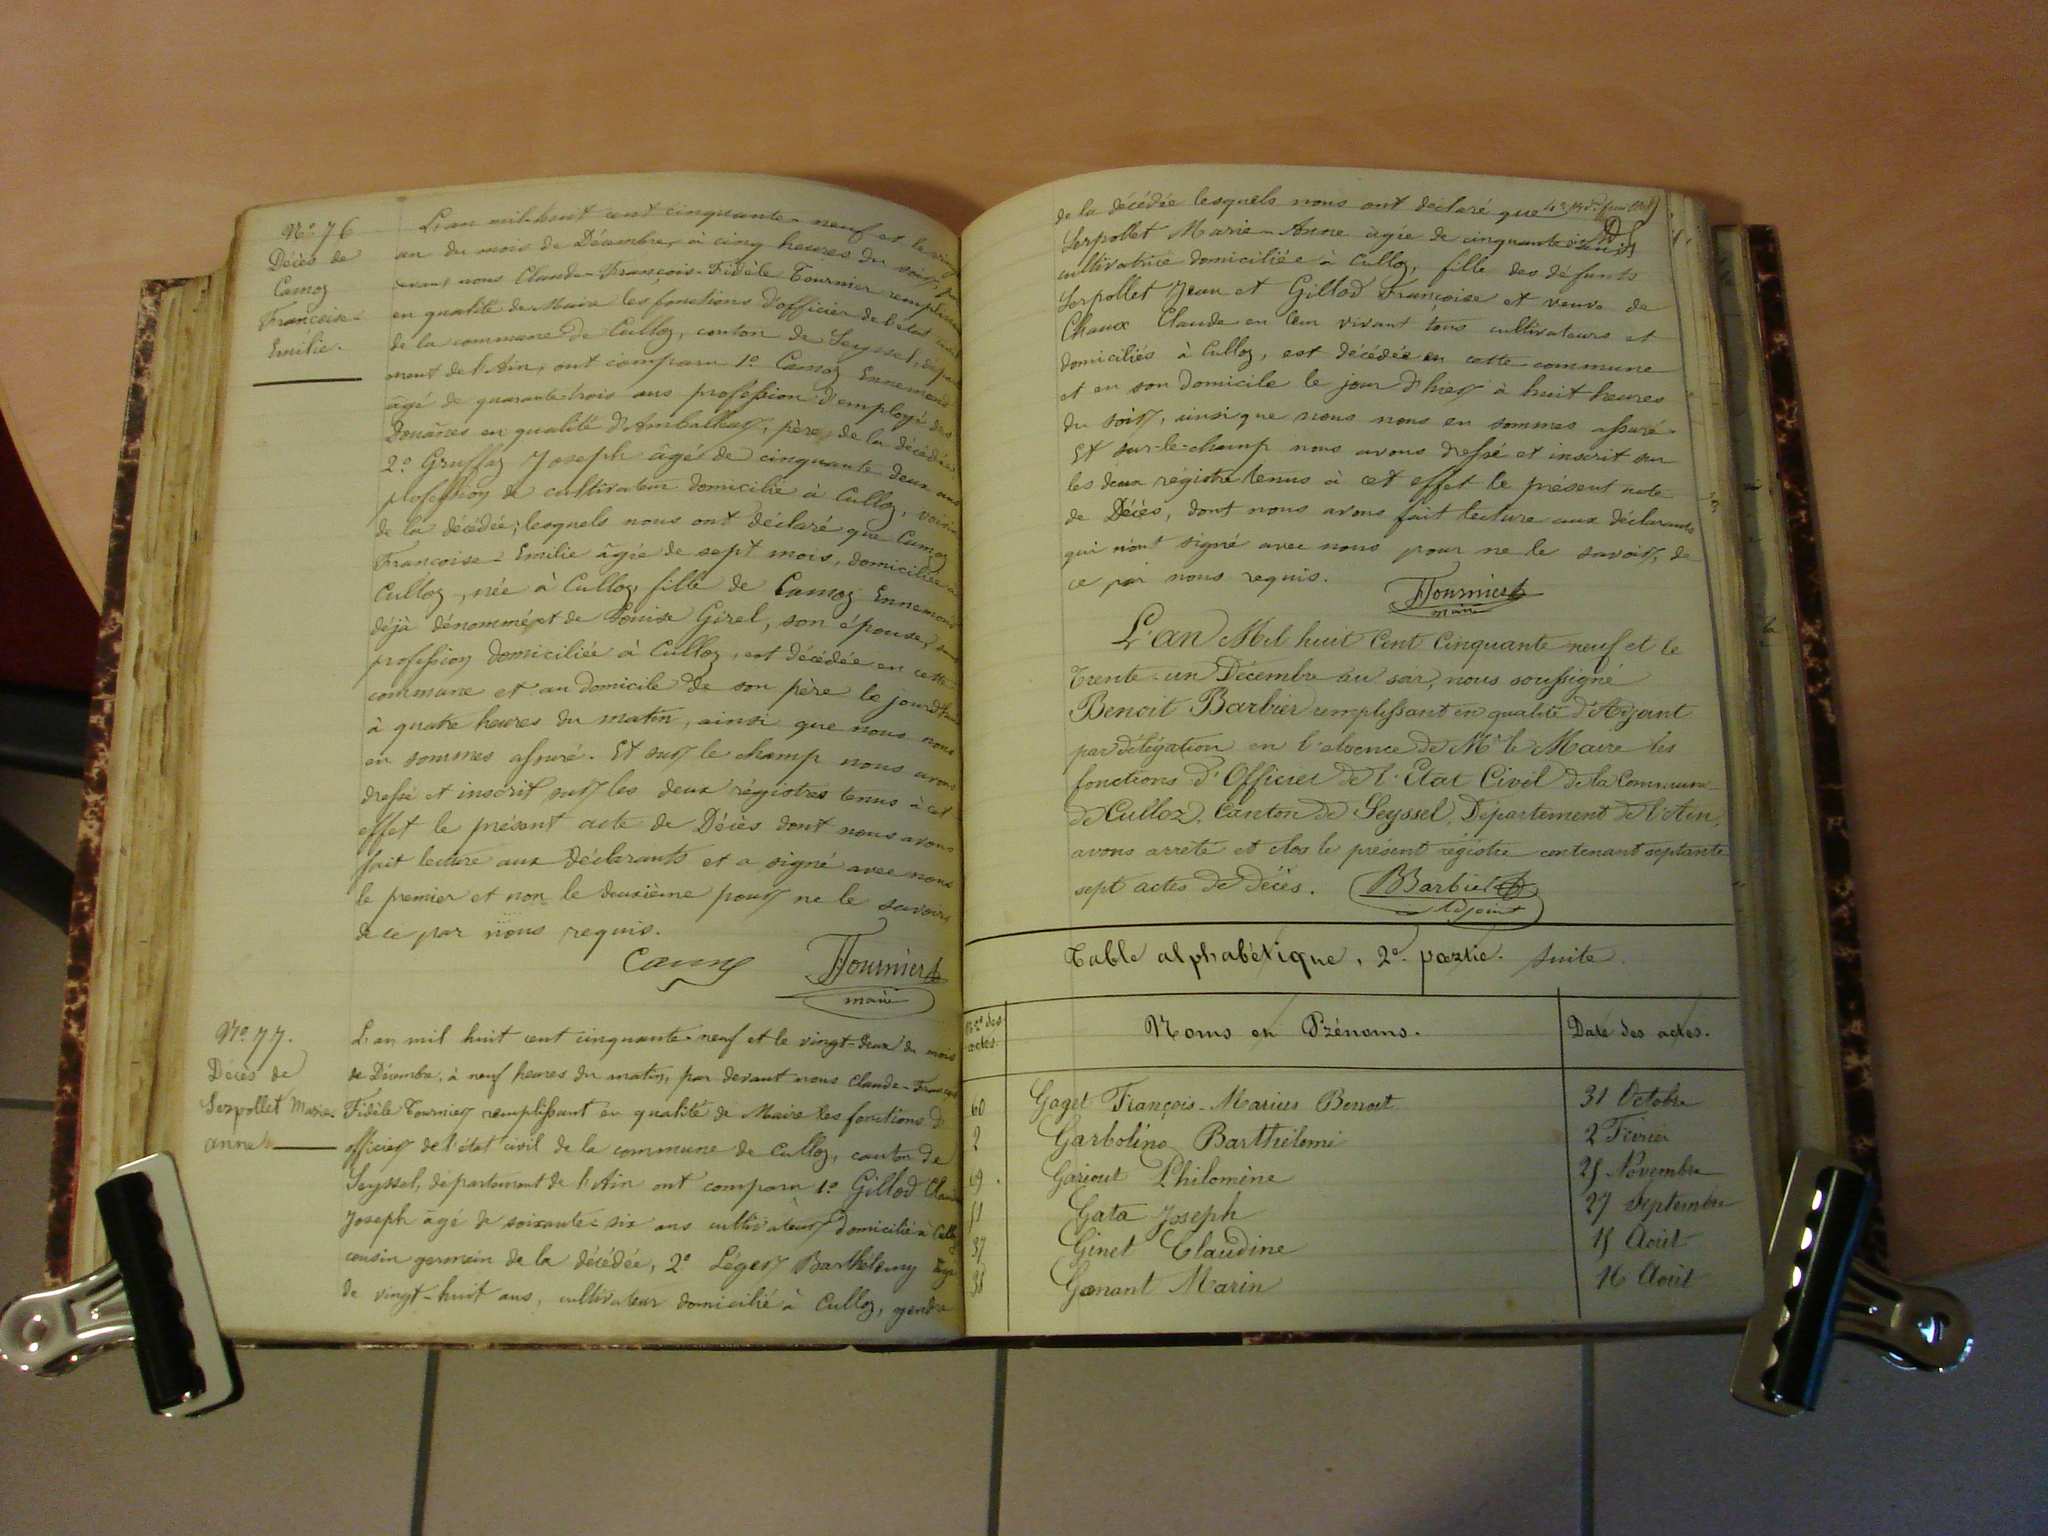 N° 76
Décès de
Camoz
Françoise-
Emilie.
L'an mil-huit cent cinquante-neuf et le vingt
un du mois de Décembre, à cinq heures du soir, par
devant nous Claude-François-Fidèle Tournier remplissant
en qualité de Maire les fonctions d'officier de l'état civil
de la commune de Culloz, canton de Seyssel, départe
ment de l'Ain, ont comparu 1° Camoz Ennemond
âgé de quarante trois ans profession d'employé des
Douânes en qualité d'Amballeur, père de la décédée
2° Gruffaz Joseph âgé de cinquante deux ans
profession de cultivateur domicilié à Culloz, voisin
de la décédée; lesquels nous ont déclaré que Camoz
Françoise-Emilie âgée de sept mois, domiciliée à
Culloz, née à Culloz, fille de Camoz Ennemond
déjà dénommé et de Louise Girel, son épouse, sans
profession domiciliée à Culloz, est décédée en cette
commune et au domicile de son père le jourd'hui
à quatre heures du matin, ainsi que nous nous
en sommes assuré. Et sur le champ nous avons
dressé et inscrit sur les deux régistres tenus à cet
effet le présent acte de Décès dont nous avons
fait lecture aux déclarants et a signé avec nous
le premier et non le deuxième pour ne le savoir,
de ce par nous requis.
Camoz Tournier
maire
N° 77.
Décès de
Serpollet Marie-
anne
L'an mil huit cent cinquante-neuf et le vingt-deux du mois
de Décembre, à neuf heures du matin, par devant nous Claude-François
Fidèle Tournier remplissant en qualité de Maire les fonctions d'
officier de l'état civil de la commune de Culloz, canton de
Seyssel, département de l'Ain ont comparu 1° Gillod Claude
Joseph âgé de soixante-six ans cultivateur domicilié à Culloz
cousin germain de la décédée, 2° Léger Barthélemy âgé
de vingt-huit ans, cultivateur domicilié à Culloz, gendre
de la décédée lesquels nous ont déclaré que
Serpollet Marie-Anne âgée de cinquante
cultivatrice domiciliée à Culloz, fille des défunts
Serpollet Jean et Gillod Françoise et veuve de
Chaux Claude en leur vivant tous cultivateurs et
domiciliés à Culloz, est décédée en cette commune
et en son domicile le jour d'hier à huit heures
du soir, ainsi que nous nous en sommes assuré.
Et sur-le-champ nous avons dressé et inscrit sur
les deux régistre tenus à cet effet le présent acte
de Décès, dont nous avons fait lecture aux déclarants
qui n'ont signé avec nous pour ne le savoir, de
ce par nous requis.
Tournier
maire
L'an Mil huit Cent Cinquante neuf et le
Trente-un Décembre au soir, nous soussigné
Benoit Barbier remplissant en qualité d'Adjoint
par délégation en l'absence de Mr le Maire les
fonctions d'Officier de l'Etat Civil de la Commune
de Culloz, Canton de Seyssel, Département de l'Ain,
avons arrêté et clos le présent régistre contenant septante
sept actes de décès. BBarbier
Adjoint
Table alphabétique, 2e. partie. suite.
Nos des
actes. Noms en Prénoms. Date des actes.
60 Gaget François-Marius Benoit 31 Octobre
2 Garbolino Barthélemi 2 Février
69 Gariout Philomène 25 Novembre
51 Gata Joseph 27 Septembre
37 Ginet Claudine 15 Août
38 Gonant Marin 16 Août